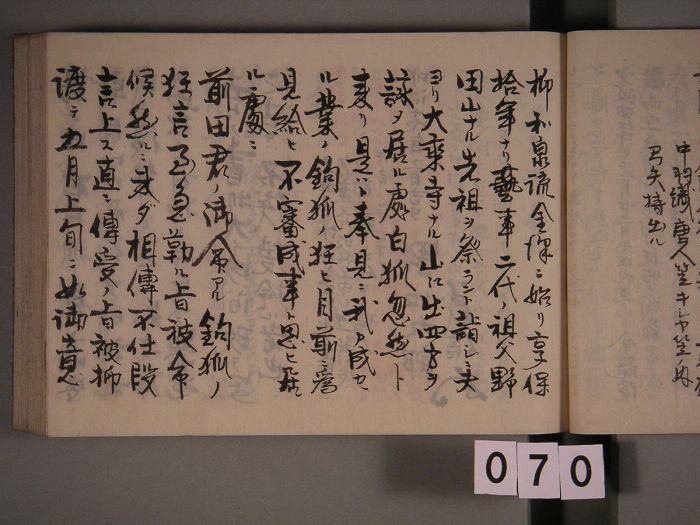 中羽織唐人笠キ
弓矢持出ル
抑和泉流金沢ニ始リ享保
拾年ナリ藝事二代祖父野
田山ナル先祖ヲ祭ラント詣シニ夫
ヨリ大乘寺ナル山ニ出四方ヲ
詠メ居ル處白狐忽然ト
来リ是ヲ奉見ニ我カ成セ
ル業ノ釣狐ノ狂ヒ目前ニ為
見給ヒ不審成事ト思ヒ居
ル處ニ
前田君ノ御命アル 釣狐ノ
狂言至急勤ル旨被命
候然ルニ未タ相傳不仕段
言上ス直ニ傳受ノ旨被抑
渡テ五月上旬ニ如御意